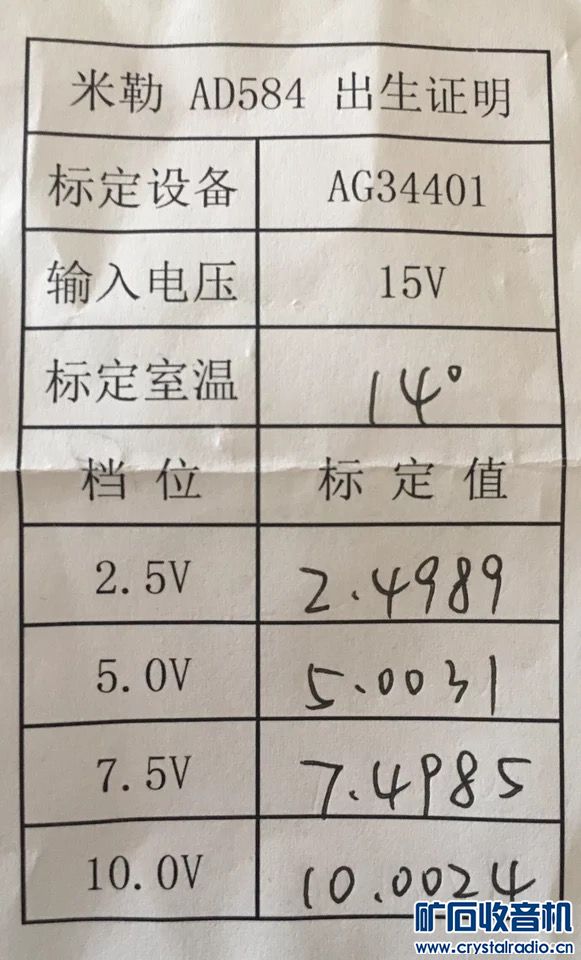 米勒 AD584 出生证明
标定设备 AG34401
输入电压 15V
标定室温 14°
档 位 标 定 值
2.5V 2.4989
5.0V 5.0031
7.5V 7.4985
10.0V 10.0024
矿石收音机
www.crystalradio.cn